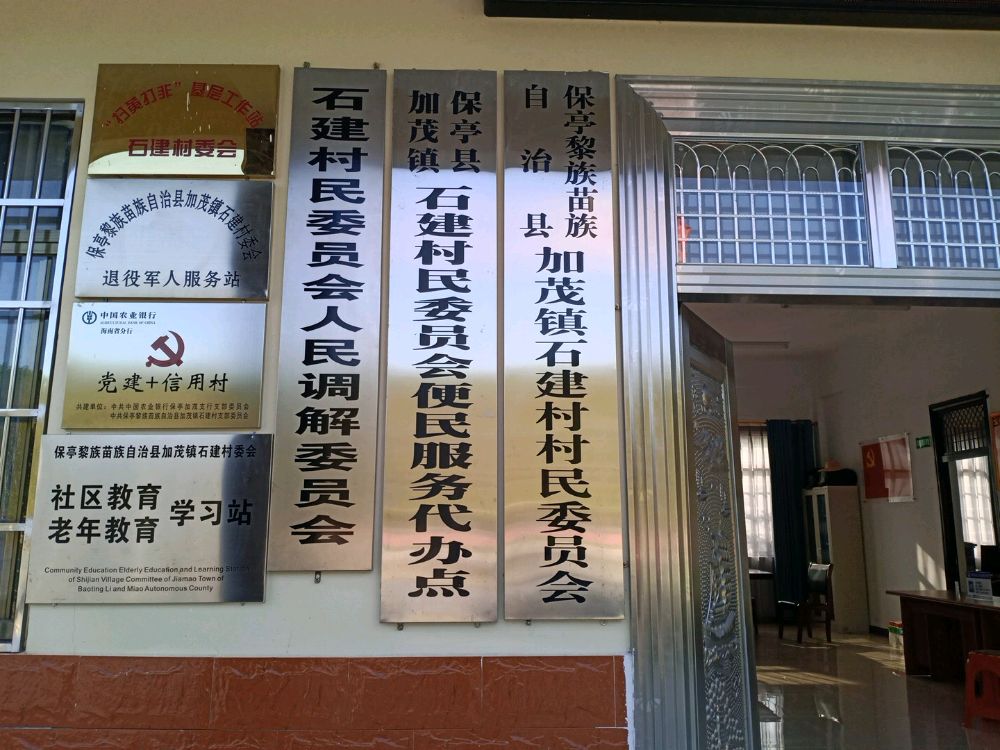 “扫黄打非”基层工作站
石建村委会
保亭黎族苗族自治县加茂镇石建村委会
退役军人服务站
中国农业银行
AGRICULTURAL BANK OF CHINA
海南省分行
党建+信用村
共建单位：中共中国农业银行保亭加茂支行支部委员会
中共保亭黎族苗族自治县加茂镇石建村支部委员会
保亭黎族苗族自治县加茂镇石建村委会
社区教育
老年教育
学习站
Community Education Elderly Education and Learning Station
of Shijian Village Committee of Jiamao Town of
Baoting Li and Miao Autonomous County
石建村民委员会人民调解委员会
保亭县
加茂镇
石建村民委员会便民服务代办点
保亭黎族苗族
自治县
加茂镇石建村村民委员会